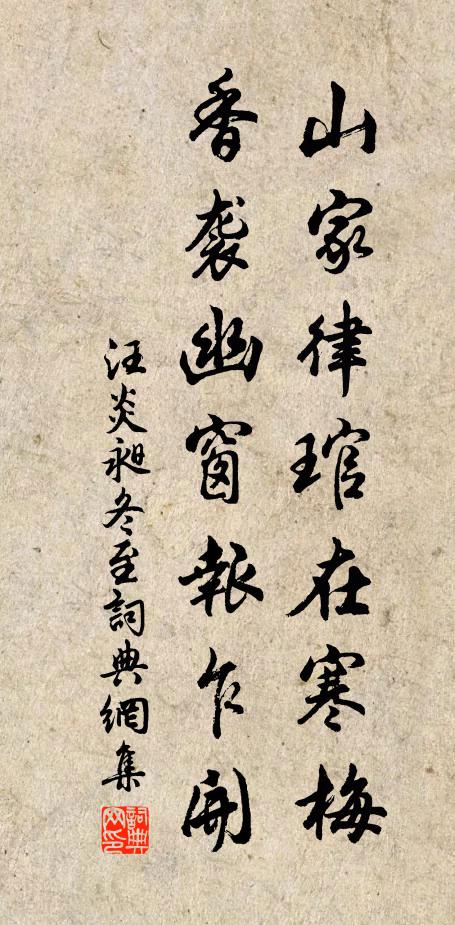 山家律琯在寒梅
香袭幽窗報乍開
汪炎昶冬至詞典網集
詞典網印